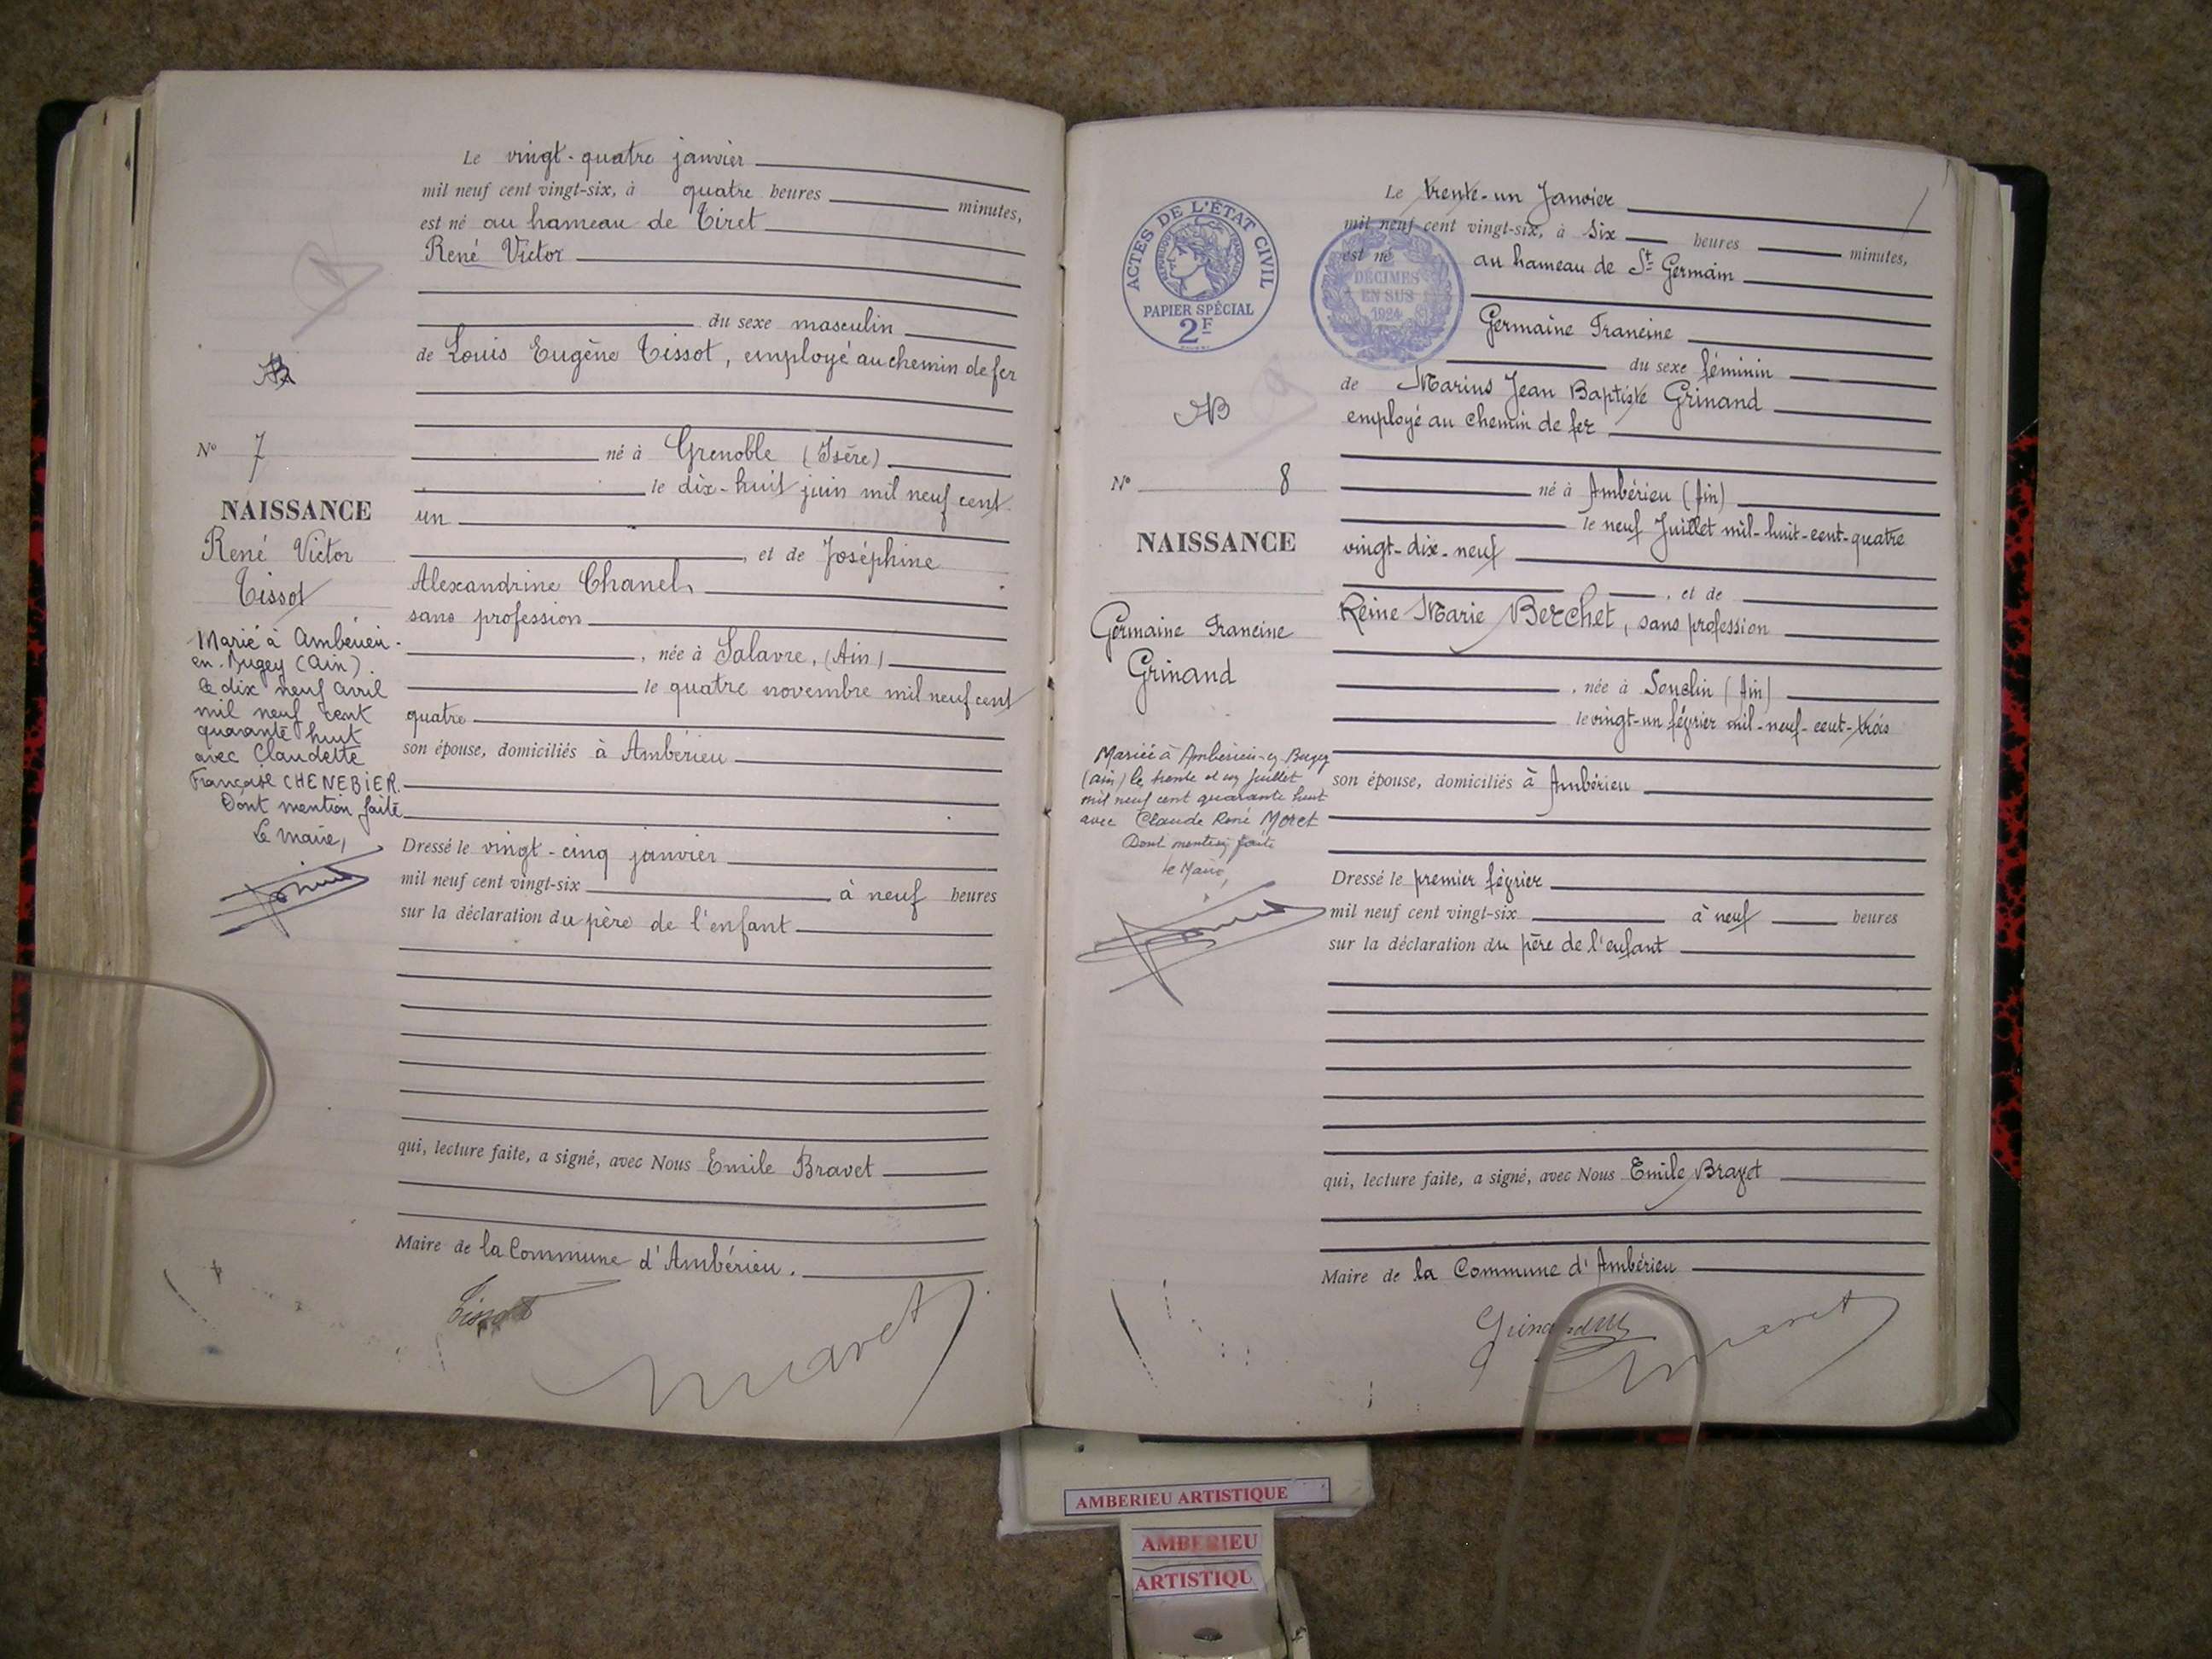 Le vingt-quatre janvier
mil neuf cent vingt-six, à quatre heures minutes,
est né au hameau de Tiret
René Victor
du sexe masculin
de Louis Eugène Tissot, employé au chemin de fer
né à Grenoble (Isère)
le dix-huit juin mil neuf cent
un
, et de Joséphine
Alexandrine Chanel
sans profession
, née à Salavre, (Ain)
le quatre novembre mil neuf cent
quatre
son épouse, domiciliés à Ambérieu
Dressé le vingt-cinq janvier
mil neuf cent vingt-six à neuf heures
sur la déclaration du père de l'enfant
qui, lecture faite, a signé, avec Nous Emile Bravet
Maire de la Commune d'Ambérieu.
Tissot
Bravet
N° 7
NAISSANCE
René Victor
Tissot
Marié à Ambérieu-
en-Bugey (Ain).
le dix neuf avril
mil neuf cent
quarante huit
avec Claudette
Françoise CHENEBIER.
Dont mention faite
Le maire,
ACTES DE L'ÉTAT CIVIL
RÉPUBLIQUE FRANÇAISE
PAPIER SPÉCIAL
2F
2
DÉCIMES
EN SUS
1924
Le trente-un Janvier
mil neuf cent vingt-six, à six heures minutes,
est né au hameau de St Germain
Germaine Francine
du sexe féminin
de Marius Jean Baptiste Grinand
employé au chemin de fer
né à Ambérieu (Ain)
le neuf Juillet mil-huit-cent-quatre
vingt-dix-neuf
, et de
Reine Marie Berchet, sans profession
, née à Souclin (Ain)
le vingt-un février mil-neuf-cent-trois
son épouse, domiciliés à Ambérieu
Dressé le premier février
mil neuf cent vingt-six à neuf heures
sur la déclaration du père de l'enfant
qui, lecture faite, a signé, avec Nous Emile Bravet
Maire de la Commune d'Ambérieu
Grinand
Bravet
N° 8
NAISSANCE
Germaine Francine
Grinand
Mariée à Ambérieu-en-Bugey
(ain) le trente et un juillet
mil neuf cent quarante huit
avec Claude René Moret
Dont mention faite
le Maire,
AMBERIEU ARTISTIQUE
AMBERIEU
ARTISTIQU